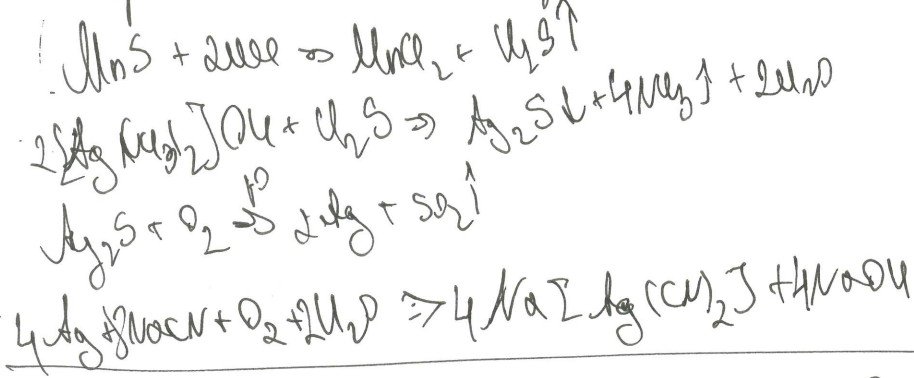 MnS + 2HCl => MnCl₂ + H₂S↑
2[Ag(NH₃)₂]OH + H₂S => Ag₂S↓ + 4NH₃↑ + 2H₂O
Ag₂S + O₂ =t°=> 2Ag + SO₂↑
4Ag + 8NaCN + O₂ + 2H₂O => 4Na[Ag(CN)₂] + 4NaOH